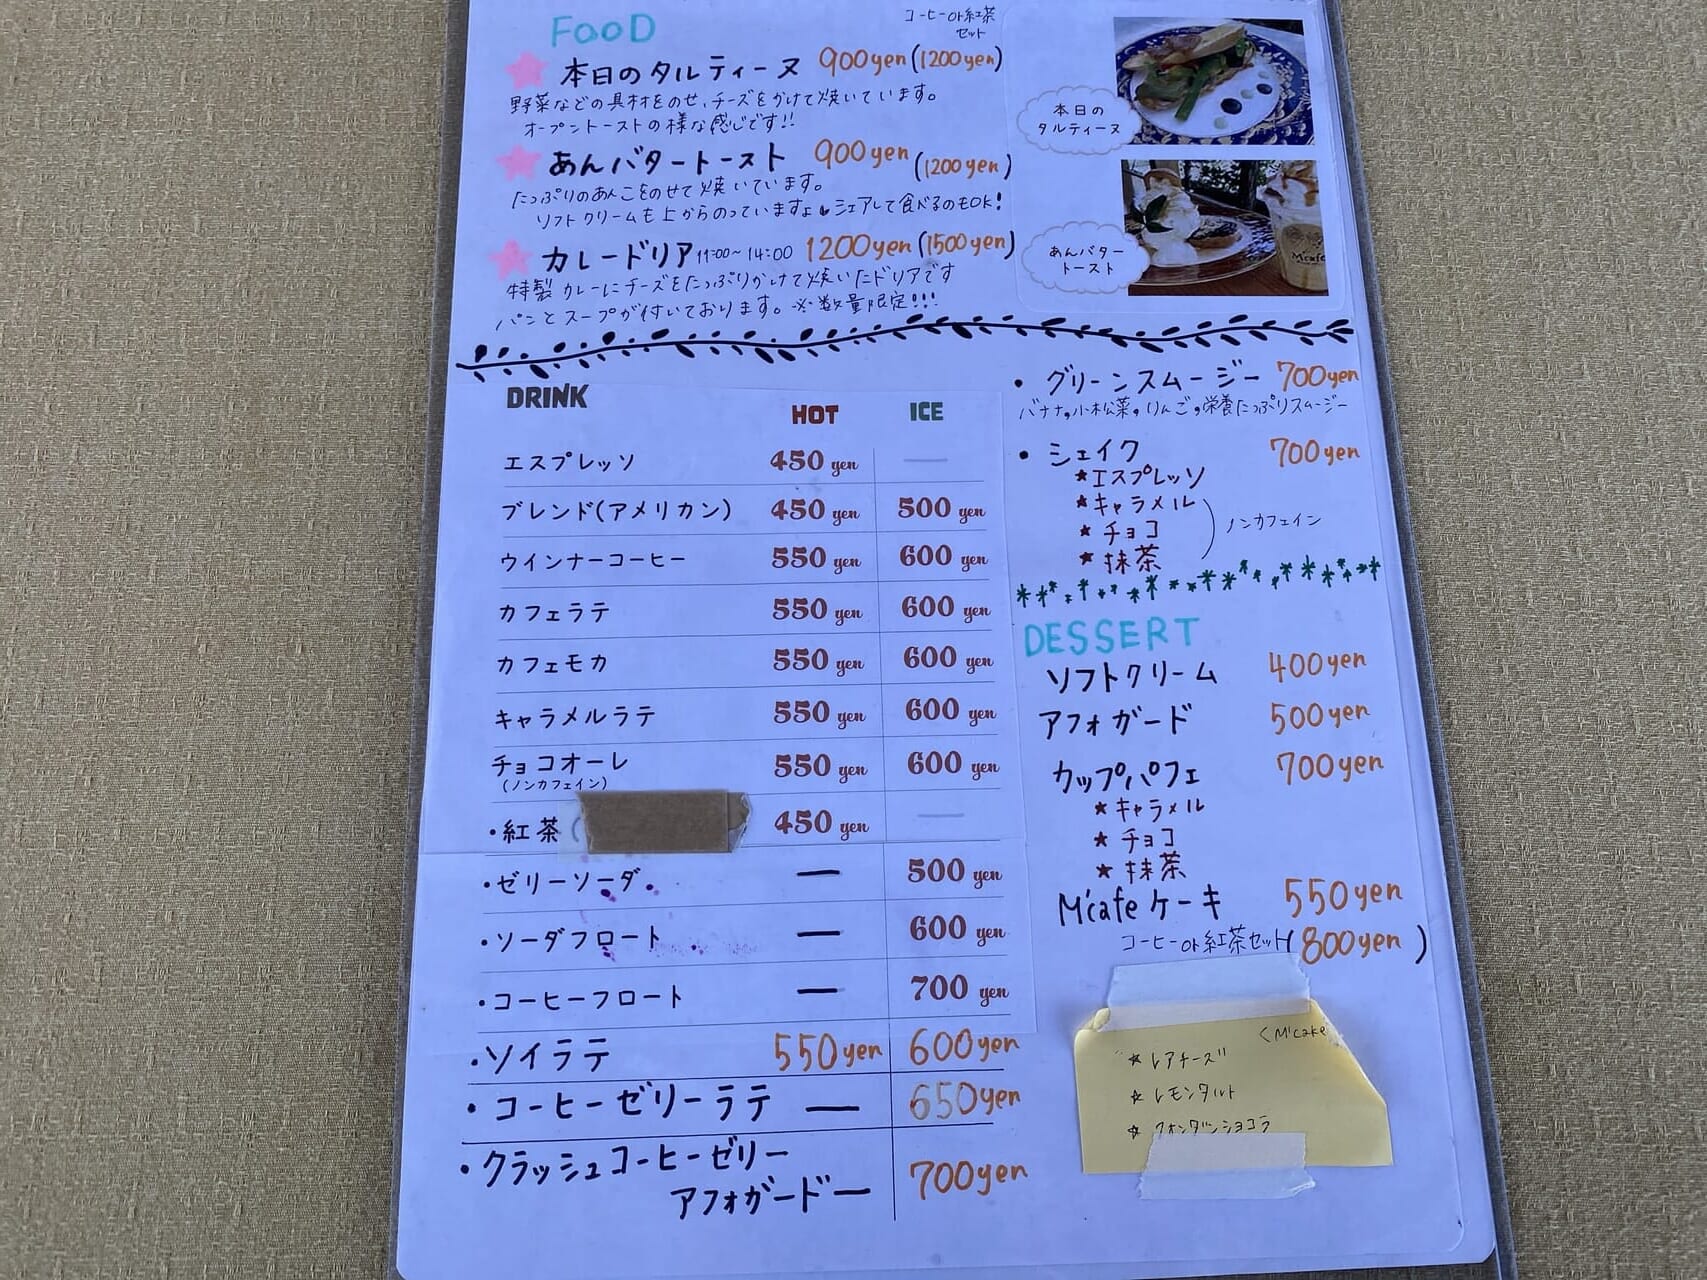 FOOD
コーヒーor紅茶
セット
本日のタルティーヌ 900yen(1200yen)
野菜などの具材をのせ、チーズをかけて焼いています。
オープントーストの様な感じです!!
あんバタートースト 900yen (1200yen)
たっぷりのあんこをのせて焼いています。
ソフトクリームも上からのっていますよ♥シェアして食べるのもOK!
カレードリア 11:00~14:00 1200yen (1500yen)
特製カレーにチーズをたっぷりかけて焼いたドリアです
パンとスープが付いております。※数量限定!!!
本日の
タルティーヌ
あんバター
トースト
M'cafe
DRINK HOT ICE
エスプレッソ 450 yen —
ブレンド(アメリカン) 450 yen 500 yen
ウインナーコーヒー 550 yen 600 yen
カフェラテ 550 yen 600 yen
カフェモカ 550 yen 600 yen
キャラメルラテ 550 yen 600 yen
チョコオーレ 550 yen 600 yen
(ノンカフェイン)
・紅茶( 450 yen —
・ゼリーソーダ。 — 500 yen
・ソーダフロート — 600 yen
・コーヒーフロート — 700 yen
・ソイラテ 550yen 600yen
・コーヒーゼリーラテ — 650yen
・クラッシュコーヒーゼリー
アフォガード — 700yen
• グリーンスムージー 700yen
バナナ,小松菜,りんご,栄養たっぷりスムージー
• シェイク 700yen
★エスプレッソ
★キャラメル
★チョコ
★抹茶
ノンカフェイン
DESSERT
ソフトクリーム 400yen
アフォガード 500yen
カップパフェ 700yen
★キャラメル
★チョコ
★抹茶
M'cafeケーキ 550yen
コーヒーor紅茶セット(800yen)
<M'cake
☆レアチーズ
☆レモンタルト
☆フォンダンショコラ